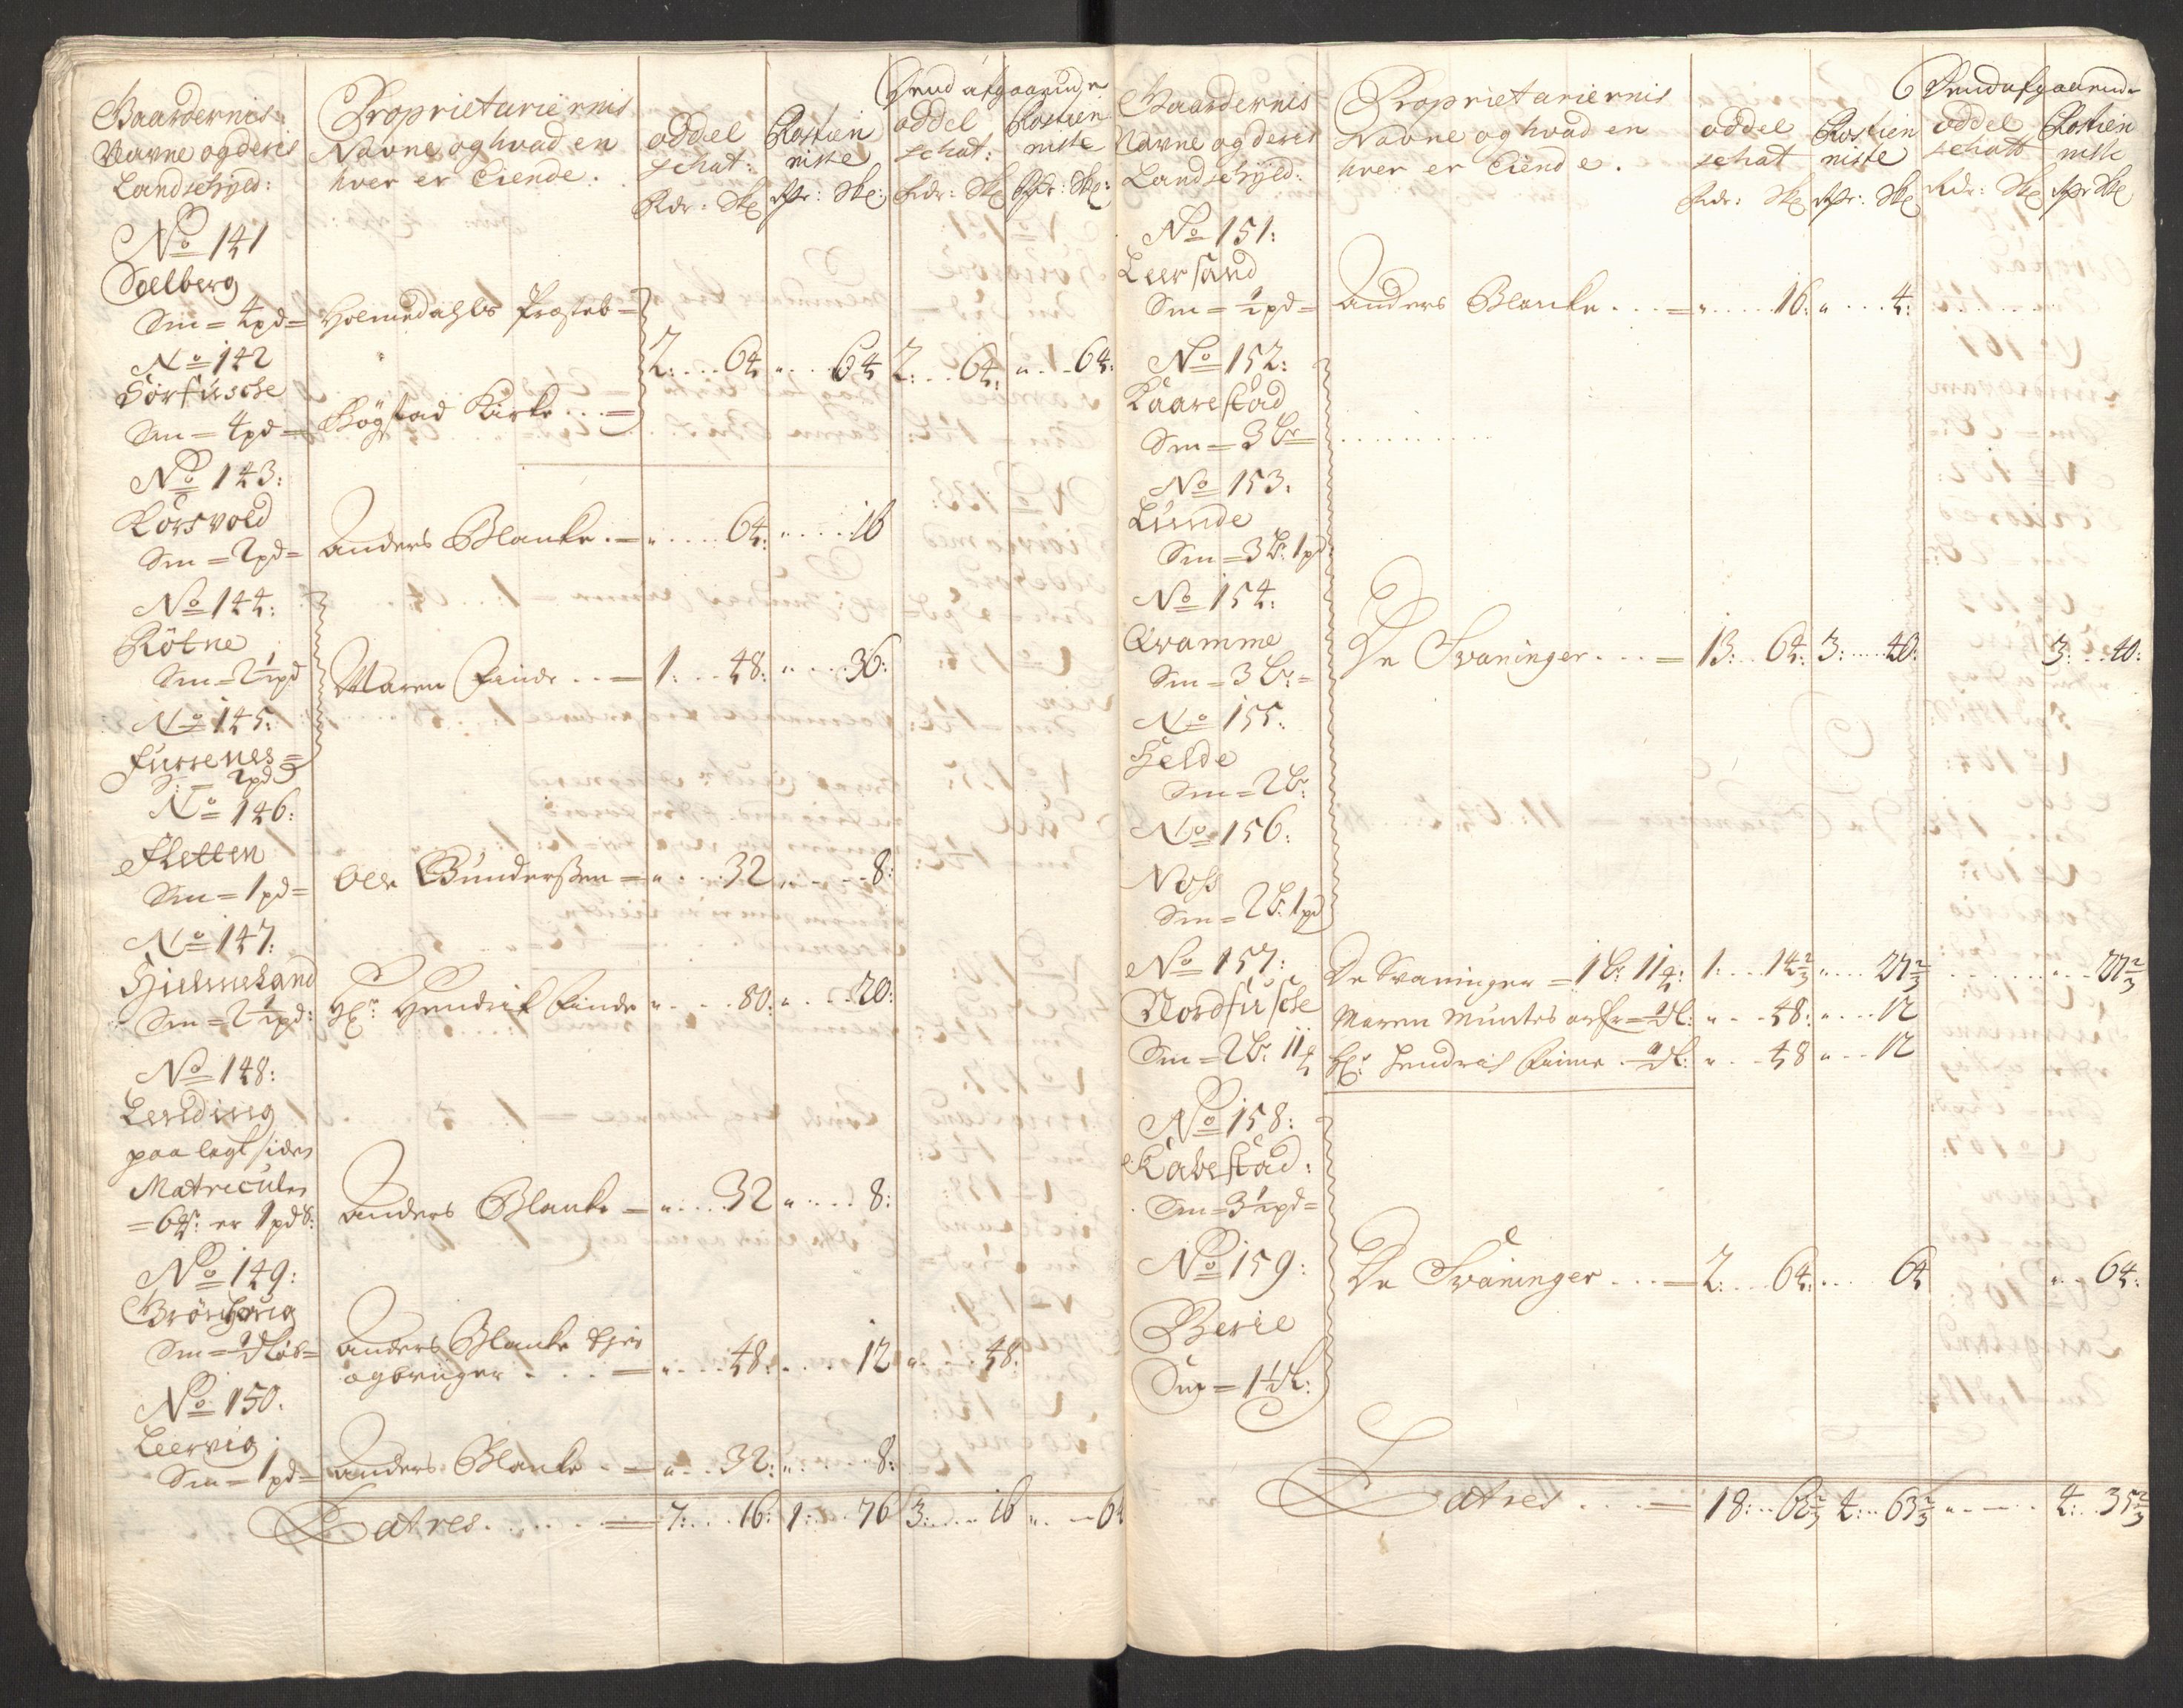 Gaardernis
Navne og deris
Landschyld:
Proprietariernis
Navne og hvad en
hver er Eiende.
oddel
schat:
Rdr: Sk
Rostien
niste
Rdr: Sk:
Vendafgaaende
oddel
schat:
Rdr: Sk
Rostien
niste
Rdr: Sk:
No 141
Solberg
Sm = 4pd =
Holmedahls Præsteb =
2: . . . 64 " . . . 64 2: . . 64: " . . 64:
No 142
Sörfusche
Sm = 4pd =
Bögstad Kirke . . . =
No 143:
Korsvold
Sm = 2pd =
Anders Blanke . = " . . . . 64: " . . . . 16
No 144:
Rötne
Sm = 2½pd
Maren Finde . . = 1: . . 48: " . . . 36:
No 145:
Furrenes =
S: = 2pd
No 146:
Fletten
Sm = 1pd =
Ole Gunderssen = " . . . 32 " . . . . 8:
No 147:
Hielmeland
Sm = 2½pd:
Hr: Hendrik Finde " . . . 80: " . . . 20:
No 148:
Lending
paa lagt siden
Matriculen
= 6 er 1pd 8:
Anders Blanke = " . . . 32 " . . . . 8:
No 149:
Sm = ½löb =
Anders Blanke Eier
og bruger . . . = " . . . 48: . . . . 12 " . . . 48:
No 150.
Leervig:
Sm = 1pd =
Anders Blanke . = " . . 32: " . . . . 8:
Latres . . . . . = 7: . . . 16: 1: . . . 76 3: . . . 16 " . . 64
6
Gaardernis
Navne og deris
Landschyld:
Proprietariernis
Navne og hvad en
hver er Eiende.
oddel
schat
Rdr: Sk
Rostien
niste
Rdr: Sk
Vendafgaaende
oddel
schatt
Rdr: Sk
Rostien
niste
Rdr Sk
No 151:
Leersand
Sm = ½pd =
Anders Blancke . . . = " . . . . 16: " . . . 4:
No 152:
Kaarestad
Sm = 3 Lr =
. . . . . . . . . . .
No 153.
Lunde
Sm = 3 L: 1pd
No 154:
Qvamme
Sm = 3 L: =
De Svaninger . . . = 13: . . 64: 3: . . . . 40: 3: . . . 40:
No 155:
Helde
Sm = 2 L:
No 156:
Noss
Sm = 2 L: 1pd
No 157:
Nordfusche
Sm = 2 L: 11
De Svaninger = 1 L: 11 1: . . . 14⅔ " . . . . 27⅔ . . . . . . . . " . . . 27⅔
Maren Muntes = ½L: " . . . 48: " . . . 12
Hr: Hendrich Finne . ½L: " . . . 48 " . . . 12
No 158:
Kabestad:
Sm = 3½pd =
No 159:
Berie
Sm = 1½L:
De Svaninger . . . = 2: . . . 64: . . . 64 " . . 64:
Latres . . . = 18: . . 62⅔ 4: . . 63⅔ " . . — . . 4: . . 35⅔